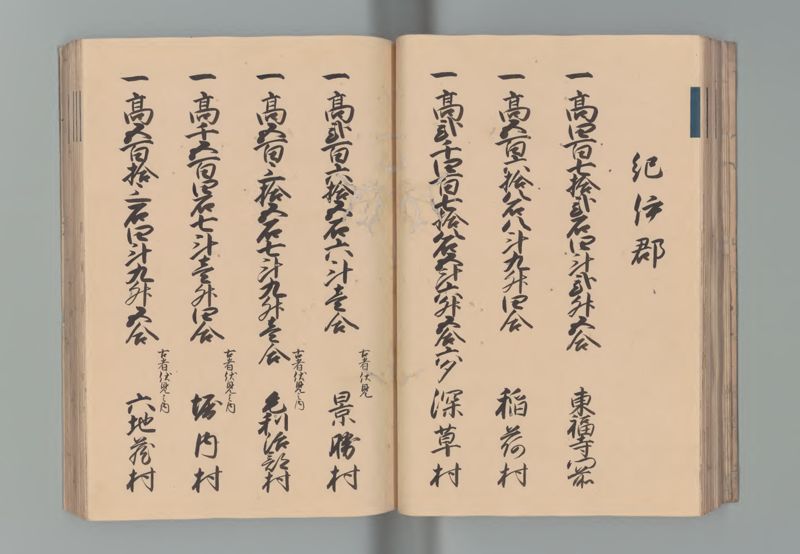 紀伊郡
一高四百七拾弐石四斗弐升五合 東福寺門前
一高五百六拾八石八斗九升四合 稲荷村
一高弐千四百七拾八石五斗六升五合六夕 深草村
一高弐百六拾五石六斗壱合 古者伏見 景勝村
一高五百三拾五石七斗九升壱合 古者伏見之内 毛利治部村
一高千五百四石七斗壱升四合 古者伏見之内 堀内村
一高五百拾三石四斗九升五合 古者伏見之内 六地蔵村